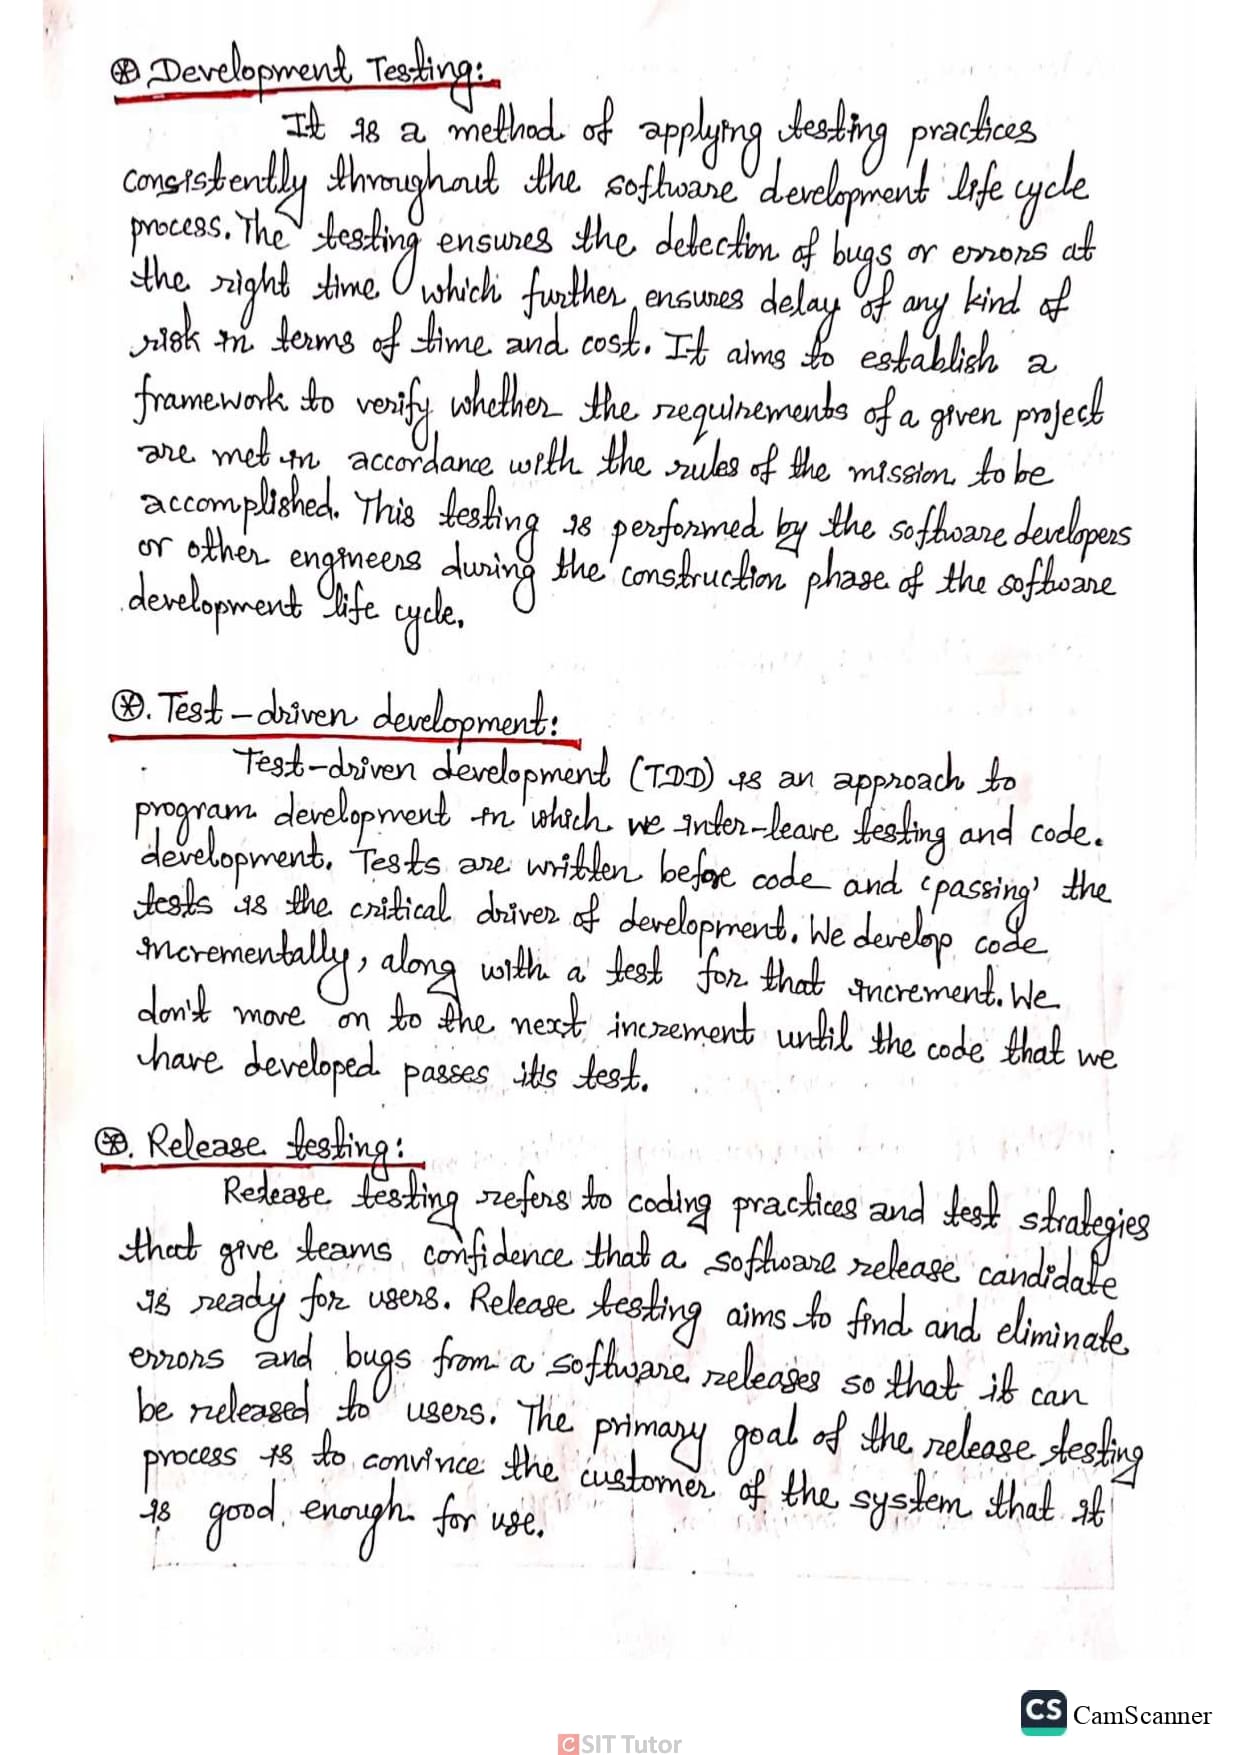 ⊛ Development Testing:
It is a method of applying testing practices
consistently throughout the software development life cycle
process. The testing ensures the detection of bugs or errors at
the right time which further ensures delay of any kind of
risk in terms of time and cost. It aims to establish a
framework to verify whether the requirements of a given project
are met in accordance with the rules of the mission to be
accomplished. This testing is performed by the software developers
or other engineers during the construction phase of the software
development life cycle.
⊛. Test-driven development:
Test-driven development (TDD) is an approach to
program development in which we inter-leave testing and code.
development. Tests are written before code and 'passing' the
tests is the critical driver of development. We develop code
incrementally, along with a test for that increment. We
don't move on to the next increment until the code that we
have developed passes it's test.
⊛. Release testing:
Release testing refers to coding practices and test strategies
that give teams confidence that a software release candidate
is ready for users. Release testing aims to find and eliminate
errors and bugs from a software releases so that it can
be released to users. The primary goal of the release testing
process is to convince the customer of the system that it
is good enough for use.
CS CamScanner
CSIT Tutor